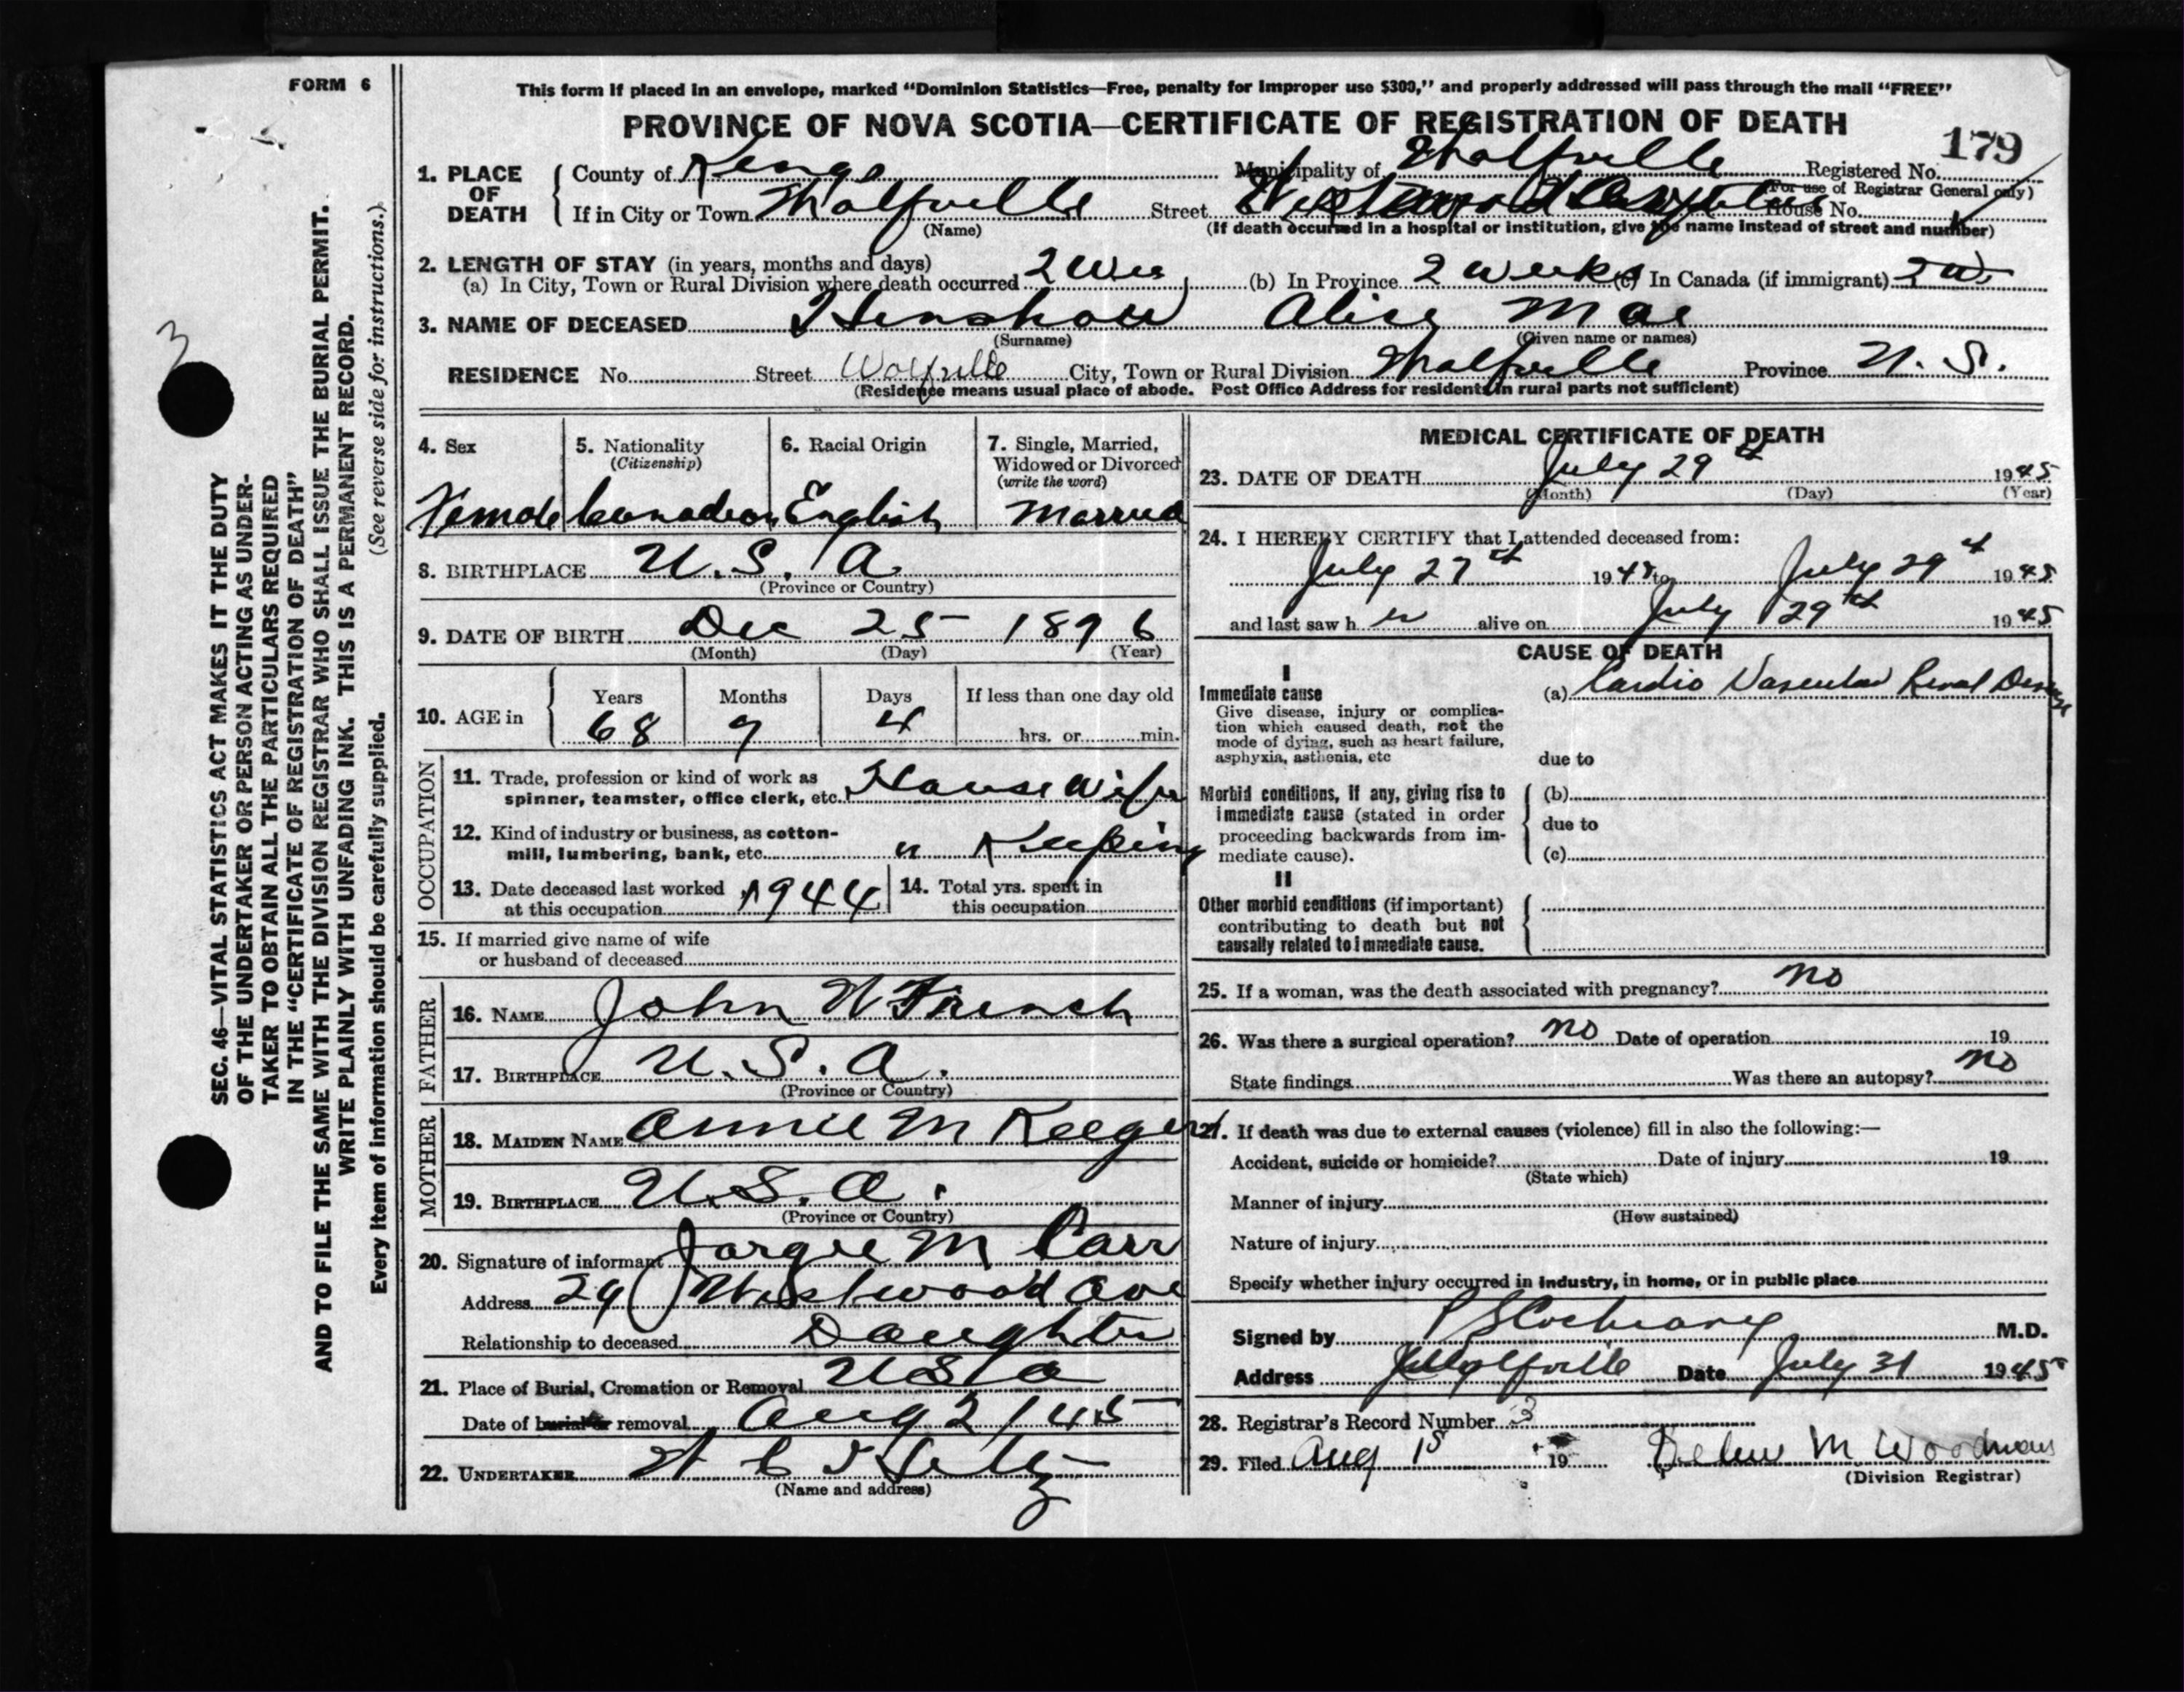 FORM 6
This form if placed in an envelope, marked “Dominion Statistics—Free, penalty for improper use $300,” and properly addressed will pass through the mail “FREE”
PROVINCE OF NOVA SCOTIA—CERTIFICATE OF REGISTRATION OF DEATH
179
1. PLACE OF DEATH { County of Kings Municipality of Wolfville Registered No.
(For use of Registrar General only)
If in City or Town Wolfville Street Westwood House No.
(Name) (If death occurred in a hospital or institution, give the name instead of street and number)
2. LENGTH OF STAY (in years, months and days)
(a) In City, Town or Rural Division where death occurred 2 (b) In Province 2 weeks (c) In Canada (if immigrant)
3. NAME OF DECEASED Henshaw Alice Mae
(Surname) (Given name or names)
RESIDENCE No. Street Wolfville City, Town or Rural Division Wolfville Province N. S.
(Residence means usual place of abode. Post Office Address for residents in rural parts not sufficient)
4. Sex
Female
5. Nationality
(Citizenship)
Canadian
6. Racial Origin
English
7. Single, Married,
Widowed or Divorced
(write the word)
Married
8. BIRTHPLACE U. S. A.
(Province or Country)
9. DATE OF BIRTH Dec 25 1896
(Month) (Day) (Year)
10. AGE in { Years Months Days If less than one day old
68 9 4 hrs. or min.
OCCUPATION
11. Trade, profession or kind of work as
spinner, teamster, office clerk, etc. House Wife
12. Kind of industry or business, as cotton-
mill, lumbering, bank, etc. " Keeping
13. Date deceased last worked
at this occupation 1944
14. Total yrs. spent in
this occupation
15. If married give name of wife
or husband of deceased
FATHER
16. NAME John W French
17. BIRTHPLACE U. S. A.
(Province or Country)
MOTHER
18. MAIDEN NAME Annie M
19. BIRTHPLACE U. S. A.
(Province or Country)
20. Signature of informant M Carr
Address 29 Westwood Ave
Relationship to deceased Daughter
21. Place of Burial, Cremation or Removal U S A
Date of burial or removal Aug 2 / 45
22. UNDERTAKER
(Name and address)
MEDICAL CERTIFICATE OF DEATH
23. DATE OF DEATH July 29th 1945
(Month) (Day) (Year)
24. I HEREBY CERTIFY that I attended deceased from:
July 27th 1945 to July 29th 1945
and last saw h er alive on July 29th 1945
CAUSE OF DEATH
I
Immediate cause
Give disease, injury or complica-
tion which caused death, not the
mode of dying, such as heart failure,
asphyxia, asthenia, etc
(a) Cardio Vascular Renal Disease
due to
Morbid conditions, if any, giving rise to
immediate cause (stated in order
proceeding backwards from im-
mediate cause).
(b)
due to
(c)
II
Other morbid conditions (if important)
contributing to death but not
causally related to immediate cause.
25. If a woman, was the death associated with pregnancy? no
26. Was there a surgical operation? no Date of operation 19
State findings Was there an autopsy? no
27. If death was due to external causes (violence) fill in also the following:—
Accident, suicide or homicide? Date of injury 19
(State which)
Manner of injury
(How sustained)
Nature of injury
Specify whether injury occurred in industry, in home, or in public place
Signed by Cochrane M.D.
Address Wolfville Date July 31 1945
28. Registrar's Record Number 3
29. Filed Aug 1st 19 M. Woodman
(Division Registrar)
3
SEC. 46—VITAL STATISTICS ACT MAKES IT THE DUTY
OF THE UNDERTAKER OR PERSON ACTING AS UNDER-
TAKER TO OBTAIN ALL THE PARTICULARS REQUIRED
IN THE “CERTIFICATE OF REGISTRATION OF DEATH”
AND TO FILE THE SAME WITH THE DIVISION REGISTRAR WHO SHALL ISSUE THE BURIAL PERMIT.
WRITE PLAINLY WITH UNFADING INK. THIS IS A PERMANENT RECORD.
Every item of information should be carefully supplied. (See reverse side for instructions.)